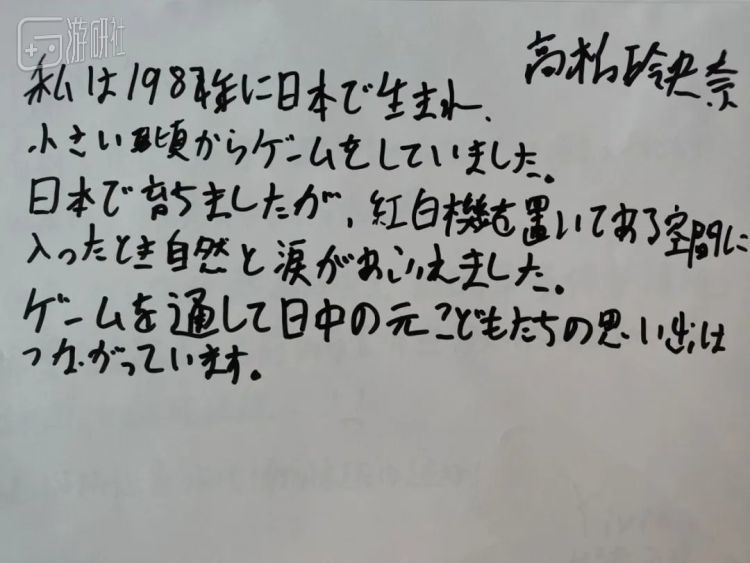 游研社
高松玲央奈
私は1987年に日本で生まれ、
小さい頃からゲームをしていました。
日本で育ちましたが、紅白機を置いてある空間に
入ったとき自然と涙があふえました。
ゲームを通して日中の元こどもたちの思い出は
つながっています。